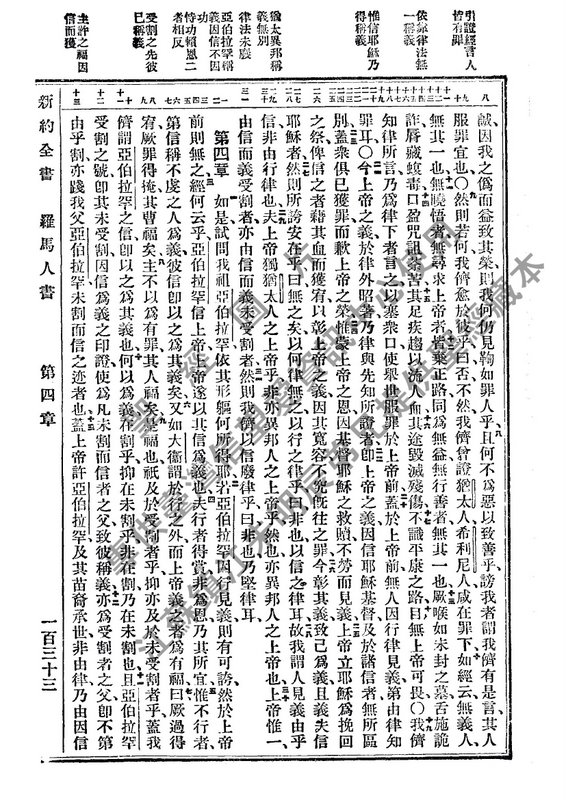 引證經書人皆有罪
依恃律法無一稱義
惟信耶穌乃得稱義
猶太異邦稱義無別
律法未廢
亞伯拉罕稱義因信不因功
恃功賴恩二者相反
受割之先彼已稱義
主許之福因信而獲
誠因我之僞而益致其榮則我何仍見鞫如罪人乎且何不爲惡以致善乎謗我者謂我儕有是言其人
服罪宜也〇然則若何我儕愈於彼乎曰否不然我儕曾證猶太人希利尼人咸在罪下如經云無義人
無其一也無曉悟者無尋求上帝者皆棄正路同爲無益無行善者無其一也厥喉如未封之墓舌施詭
詐唇藏蝮毒口盈咒詛苦其足疾趨以流人血其途毀滅殘傷不識平康之路目無上帝可畏〇我儕
知律所言乃爲律下者言以塞衆口使舉世服罪於上帝前蓋於上帝前無人因行律見義第由律知
罪耳〇今上帝之義於律外昭著乃律與先知所證者即上帝之義因信耶穌基督及於諸信者無所區
別蓋衆俱已獲罪而歉上帝之榮惟蒙上帝之恩因基督耶穌之救贖不勞而見義上帝立耶穌爲挽回
之祭俾信之者藉其血而獲宥以彰上帝之義因其寬容不究既往之罪今彰其義致己爲義且義夫信
耶穌者然則所誇安在乎曰無之矣以何律無之以行之律乎曰非也以信之律耳故我謂人見義由乎
信非由行律也夫上帝獨猶太人之上帝乎非亦異邦人之上帝乎然也亦異邦人之上帝也上帝惟一
由信而義受割者亦由信而義未受割者然則我儕以信廢律乎曰非也乃堅律耳
第四章 如是試問我祖亞伯拉罕依其形軀何所得耶若亞伯拉罕因行見義則有可誇然於上帝
前則無之經何云乎亞伯拉罕信上帝上帝遂以其信爲義也夫行者得賞非爲恩乃其所宜惟不行者
第信稱不虔之人爲義彼信即以之爲其義矣又如大衞謂於行之外而上帝義之者爲有福曰厥過得
宥厥罪得掩其曹福矣主不以爲有罪其人福矣是福也祇及於受割者乎抑亦及於未受割者乎蓋我
儕謂亞伯拉罕之信即以之爲其義也何以爲義在割乎抑在未割乎非在割乃在未割也且亞伯拉罕
受割之號即其未受割因信爲義之印證使爲凡未割而信者之父致彼稱義亦爲受割者之父即不第
由乎割亦踐我父亞伯拉罕未割而信之迹者也蓋上帝許亞伯拉罕及其苗裔承世非由律乃由因信
新約全書 羅馬人書 第四章 一百三十三